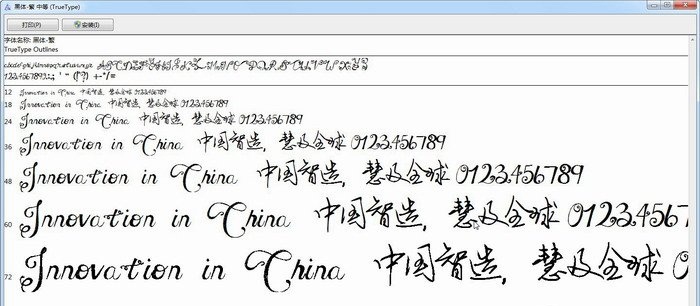 黑体-繁 中等 (TrueType)
打印(P) 安装(I)
字体名称: 黑体-繁
TrueType Outlines
abcdefghijklmnopqrstuvwxyz ABCDEFGHIJKLMNOPQRSTUVWXYZ
1234567890.:,; ' " (!?) +-*/=
12 Innovation in China 中国智造，慧及全球 0123456789
18 Innovation in China 中国智造，慧及全球 0123456789
24 Innovation in China 中国智造，慧及全球 0123456789
36 Innovation in China 中国智造，慧及全球 0123456789
48 Innovation in China 中国智造，慧及全球 0123456789
60 Innovation in China 中国智造，慧及全球 01234567
72 Innovation in China 中国智造，慧及全球 0